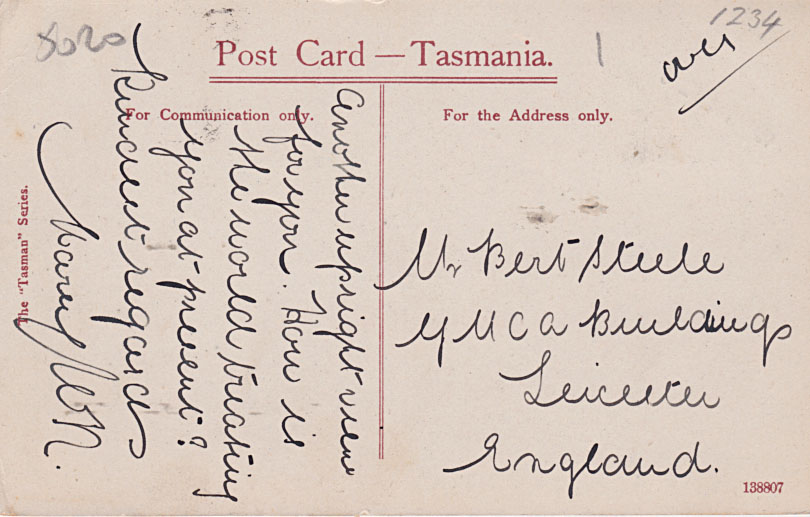 8020
1234
over
Post Card — Tasmania.
For Communication only.
For the Address only.
The "Tasman" Series.
Another upright view
for you. How is
the world treating
you at present?
Kindest regards
Mary
Mr Bert Steele
Y M C A Buildings
Leicester
England.
138807